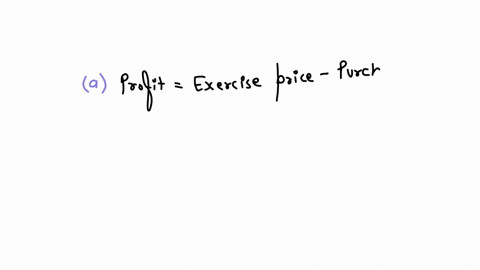 (a) Profit = Exercise price - Purch